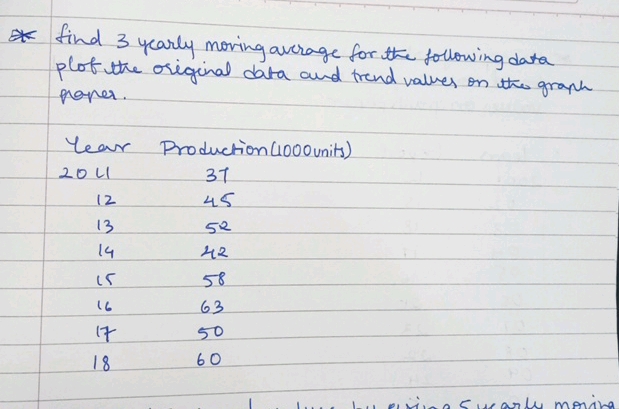 Ex find 3 yearly moving average for the following data
plot the original data and trend values on the graph
paper.
Year Production (1000 units)
2011 37
12 45
13 52
14 42
15 58
16 63
17 50
18 60
by giving 5 yearly moving